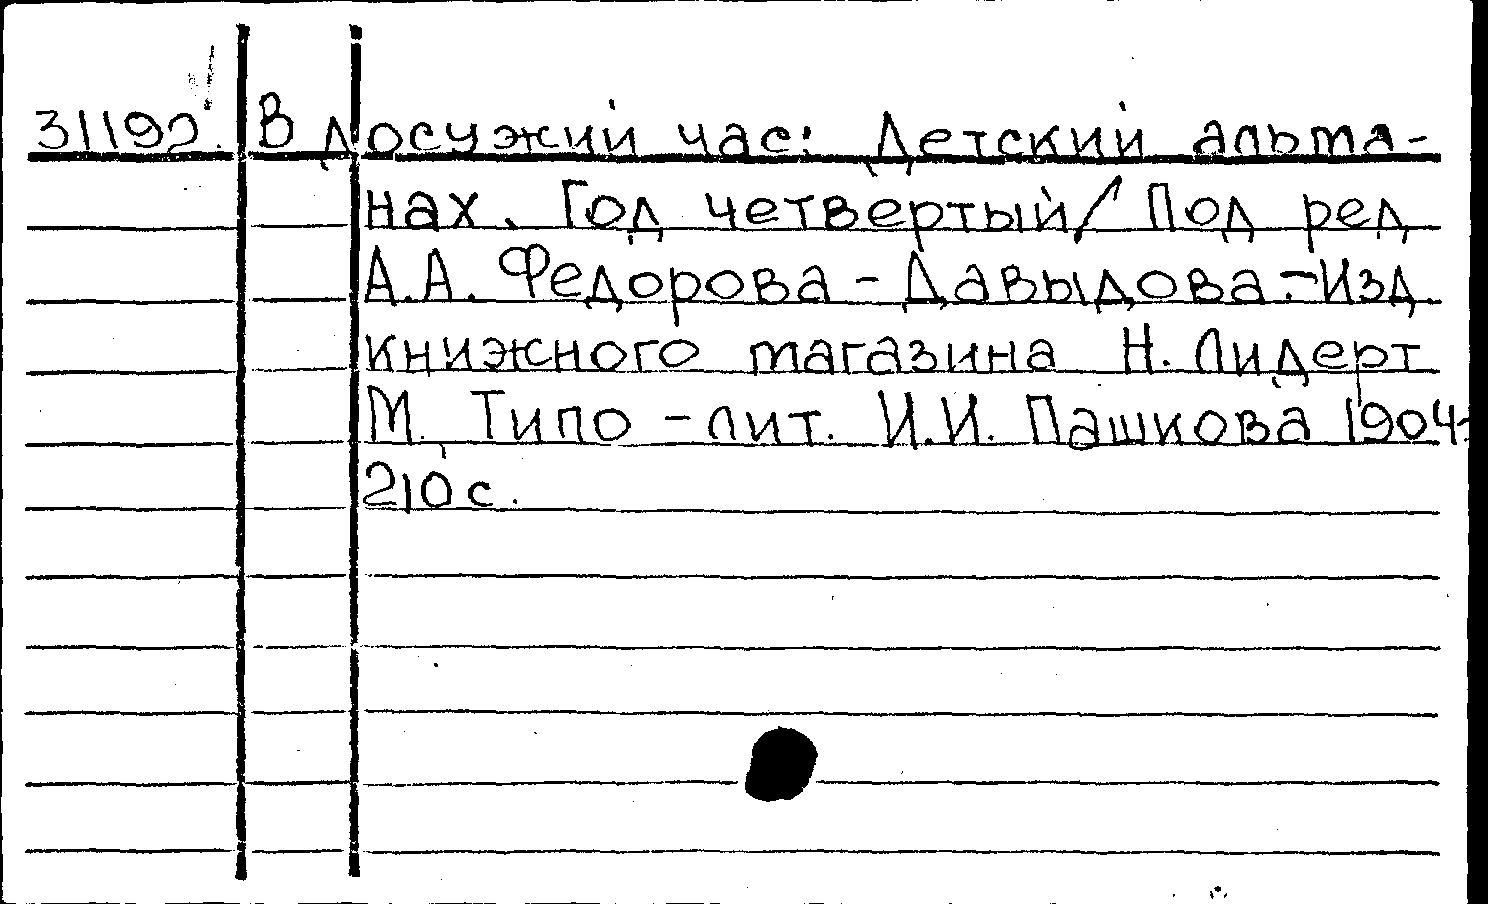 31192. В досужий час: Детский альма-
нах. Год четвертый/ Под ред
А.А. Федорова - Давыдова.-Изд.
книжного магазина Н. Лидерт
М., Типо - лит. И.И. Пашкова 1904-
210 с.